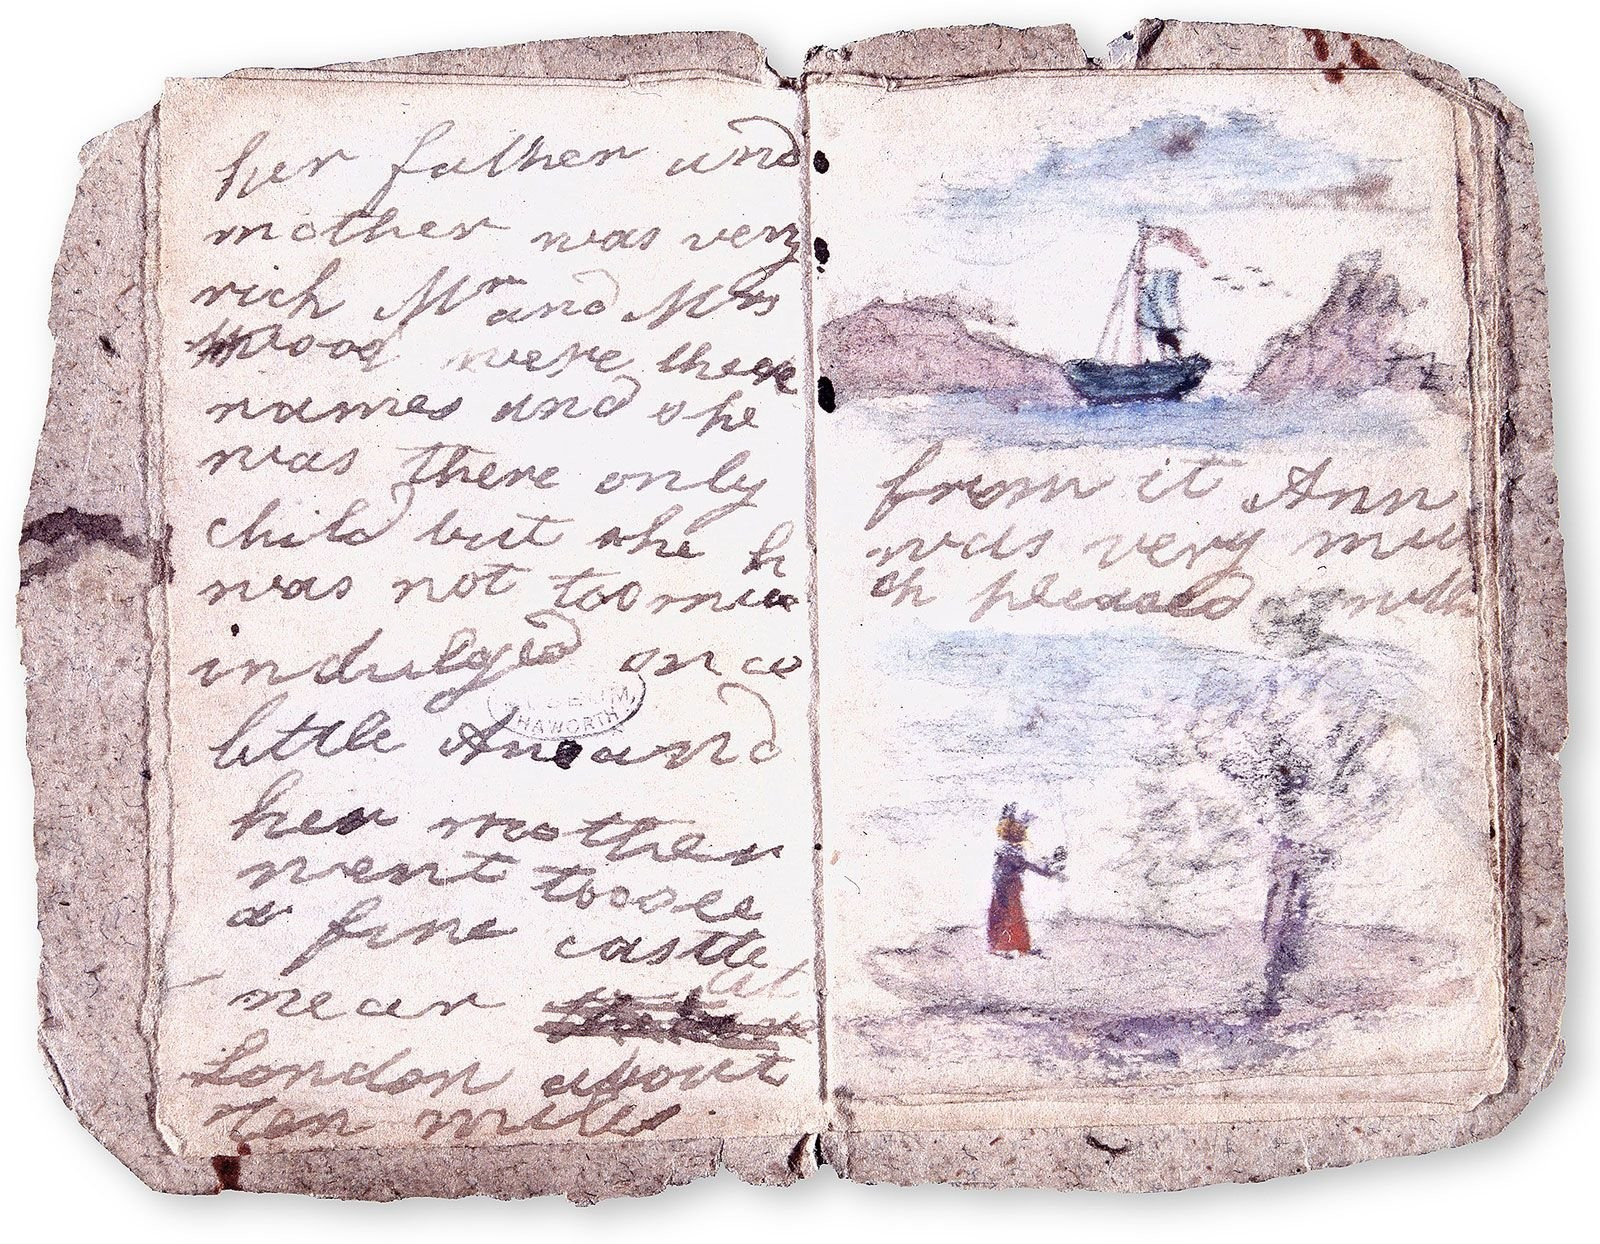 her father and
mother was very
rich Mr and Mrs
Wood were there
names and she
was there only
child but she
was not too muc
h
indulged once
little Ane and
her mother
went too see
a fine castle
near at
London about
ten miles
MUSEUM
HAWORTH
from it Ann
was very mu
ch pleased with